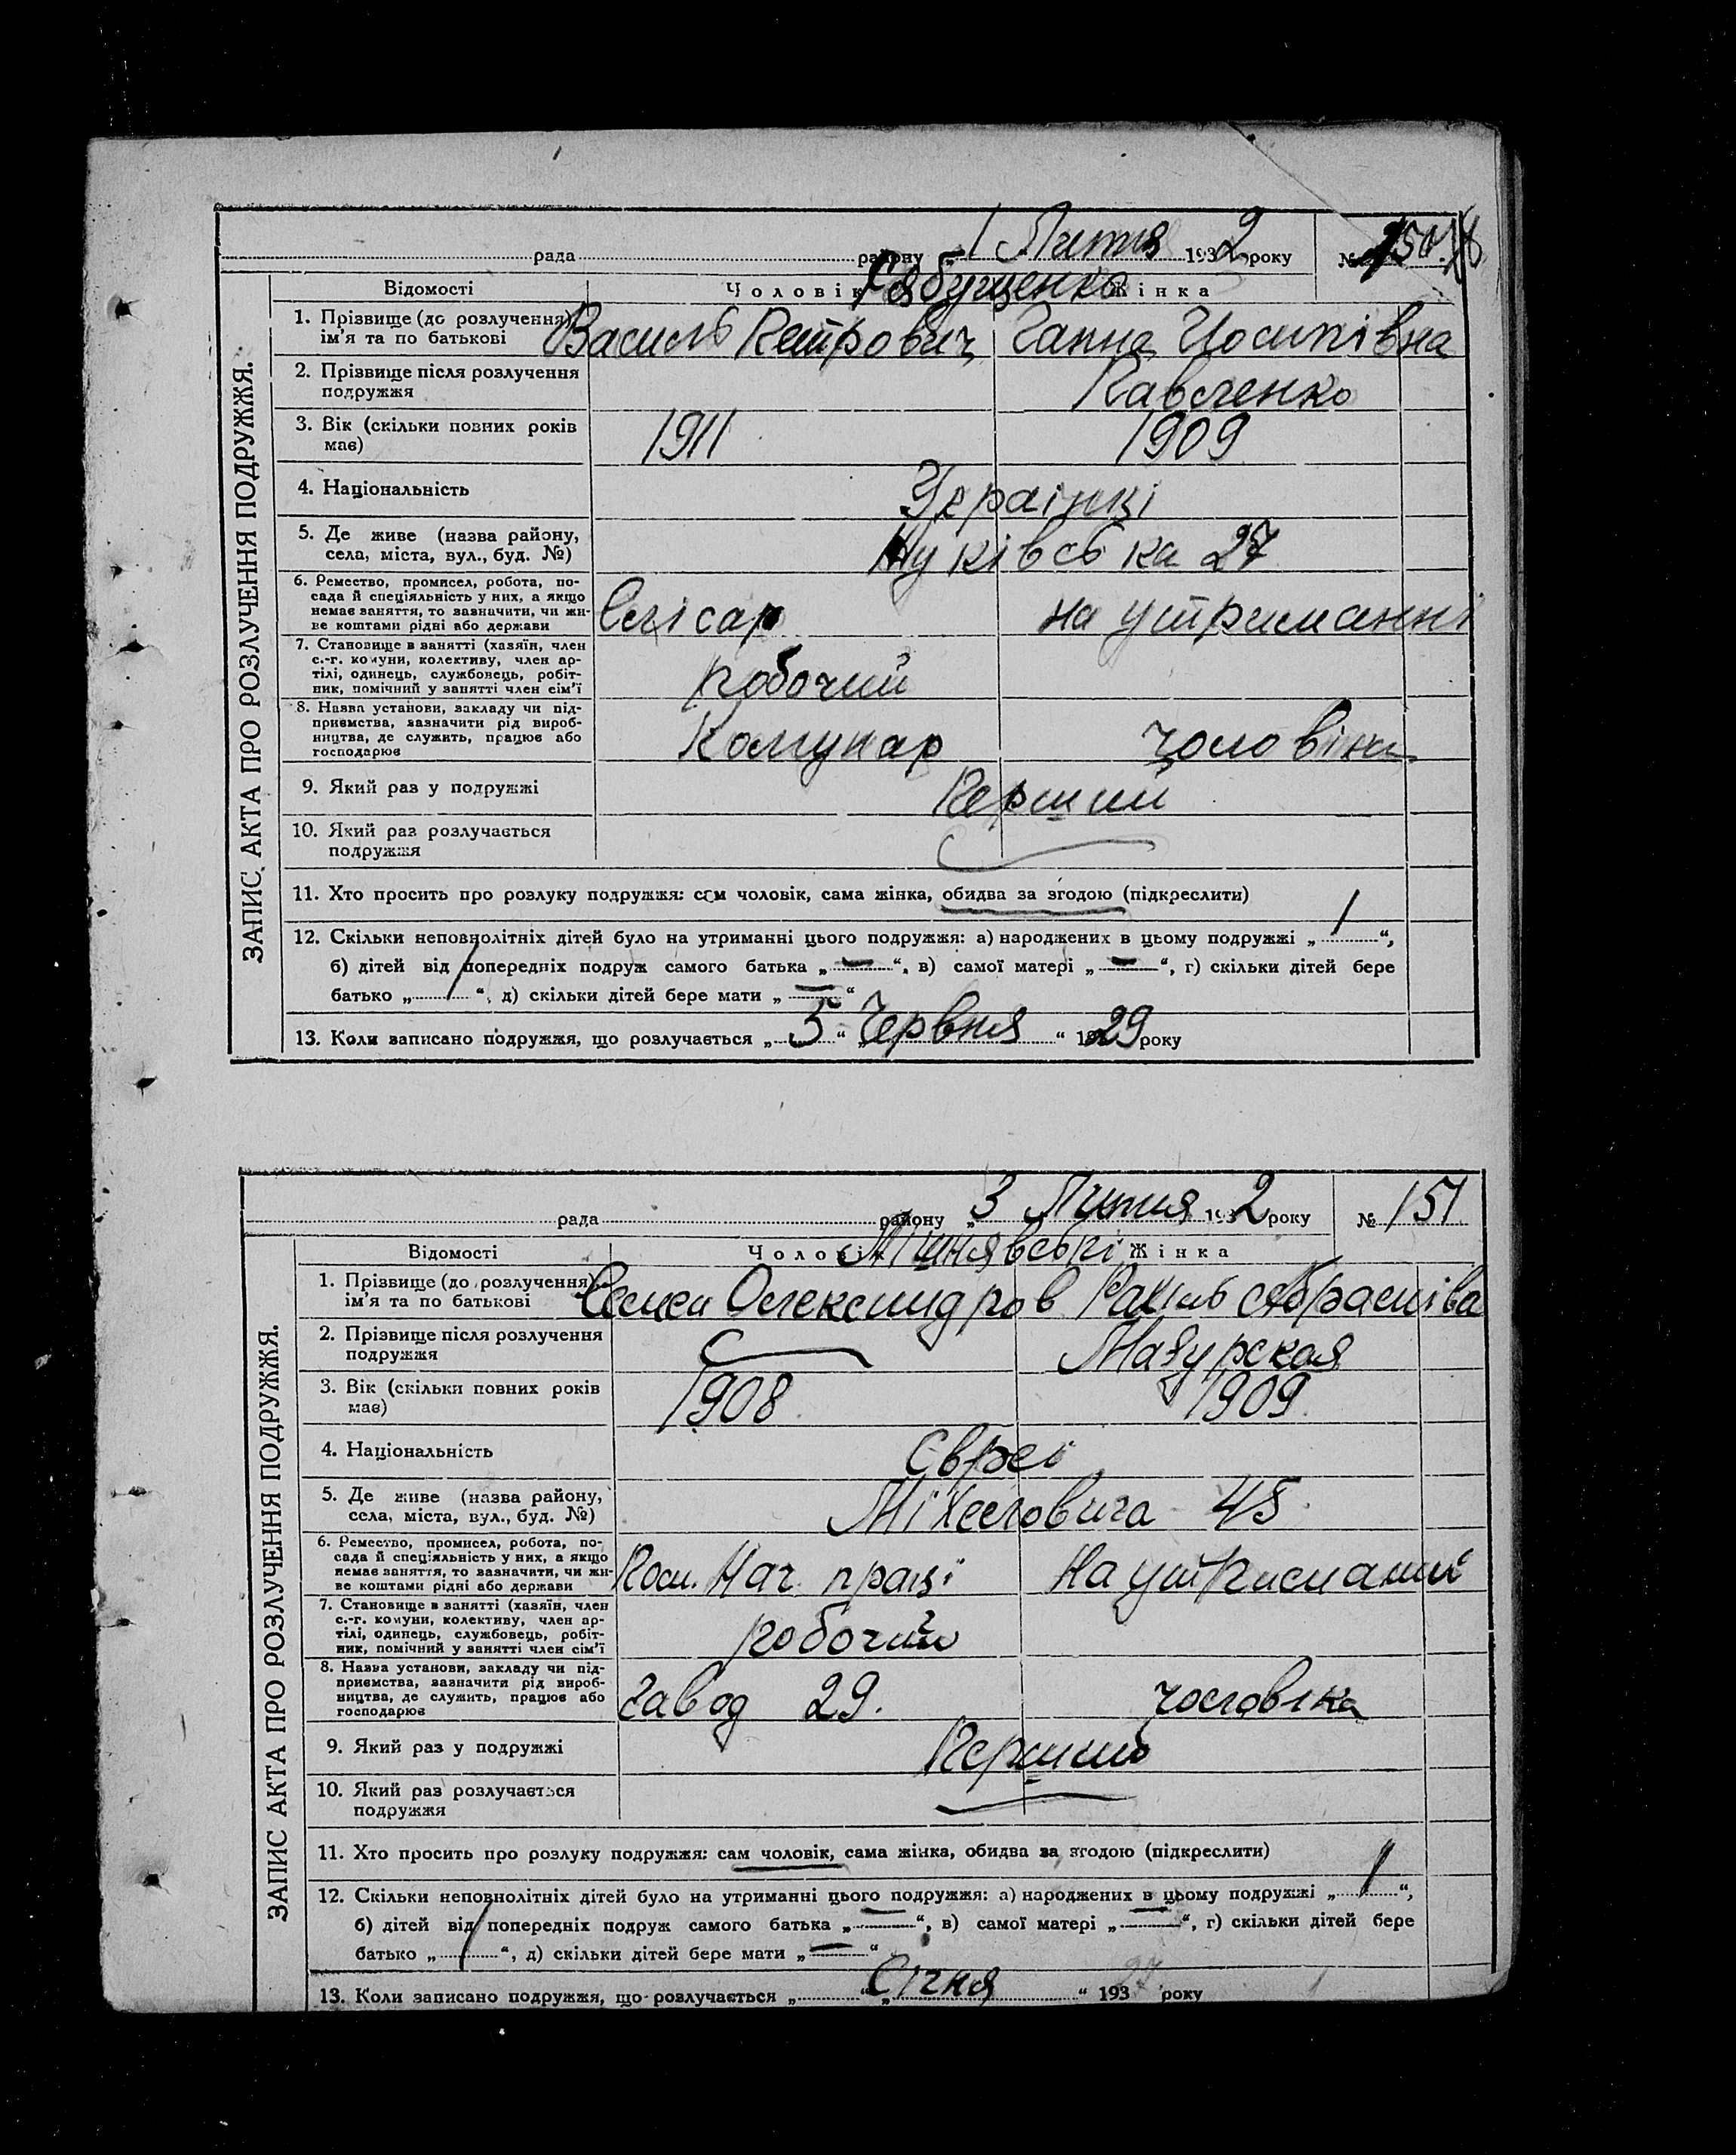 рада районy „1 Липня 1932 року № 150
Відомості Чоловік Жінка
Рябущенко
1. Прізвище (до розлучення)
ім'я та по батькові
Василь Петрович Ганна Йосипівна
2. Прізвище після розлучення
подружжя
Павленко
3. Вік (скільки повних років
має)
1911 1909
4. Національність
Українці
5. Де живе (назва району,
села, міста, вул., буд. №)
27
6. Ремество, промисел, робота, по-
сада й спеціяльність у них, а якщо
немає заняття, то зазначити, чи жи-
ве коштами рідні або держави
Слісар на утриманні
7. Становище в занятті (хазяїн, член
с.-г. комуни, колективу, член ар-
тілі, одинець, службовець, робіт-
ник, помічний у занятті член сім'ї
робочий
8. Назва установи, закладу чи під-
приємства, зазначити рід вироб-
ництва, де служить, працює або
господарює
Комунар чоловіка
9. Який раз у подружжі
Перший
10. Який раз розлучається
подружжя
11. Хто просить про розлуку подружжя: сам чоловік, сама жінка, обидва за згодою (підкреслити)
12. Скільки неповнолітніх дітей було на утриманні цього подружжя: а) народжених в цьому подружжі „1“,
б) дітей від попередніх подруж самого батька „—“, в) самої матері „—“, г) скільки дітей бере
батько „1“, д) скільки дітей бере мати „—“
13. Коли записано подружжя, що розлучається „5“ „Червня“ 1929 року
ЗАПИС АКТА ПРО РОЗЛУЧЕННЯ ПОДРУЖЖЯ.
рада району „3 Липня 1932 року № 151
Відомості Чоловік Жінка
Мишявські
1. Прізвище (до розлучення)
ім'я та по батькові
Семен Олександров Рахиль Абрамівна
2. Прізвище після розлучення
подружжя
Мазурская
3. Вік (скільки повних років
має)
1908 1909
4. Національність
Євреї
5. Де живе (назва району,
села, міста, вул., буд. №)
Міхеловича 45
6. Ремество, промисел, робота, по-
сада й спеціяльність у них, а якщо
немає заняття, то зазначити, чи жи-
ве коштами рідні або держави
Пом. Нач. праці На утриманні
7. Становище в занятті (хазяїн, член
с.-г. комуни, колективу, член ар-
тілі, одинець, службовець, робіт-
ник, помічний у занятті член сім'ї
робочий
8. Назва установи, закладу чи під-
приємства, зазначити рід вироб-
ництва, де служить, працює або
господарює
Завод 29. чоловіка
9. Який раз у подружжі
Перший
10. Який раз розлучається
подружжя
11. Хто просить про розлуку подружжя: сам чоловік, сама жінка, обидва за згодою (підкреслити)
12. Скільки неповнолітніх дітей було на утриманні цього подружжя: а) народжених в цьому подружжі „1“,
б) дітей від попередніх подруж самого батька „—“, в) самої матері „—“, г) скільки дітей бере
батько „1“, д) скільки дітей бере мати „—“
13. Коли записано подружжя, що розлучається „ “ „Січня“ 193 року
ЗАПИС АКТА ПРО РОЗЛУЧЕННЯ ПОДРУЖЖЯ.